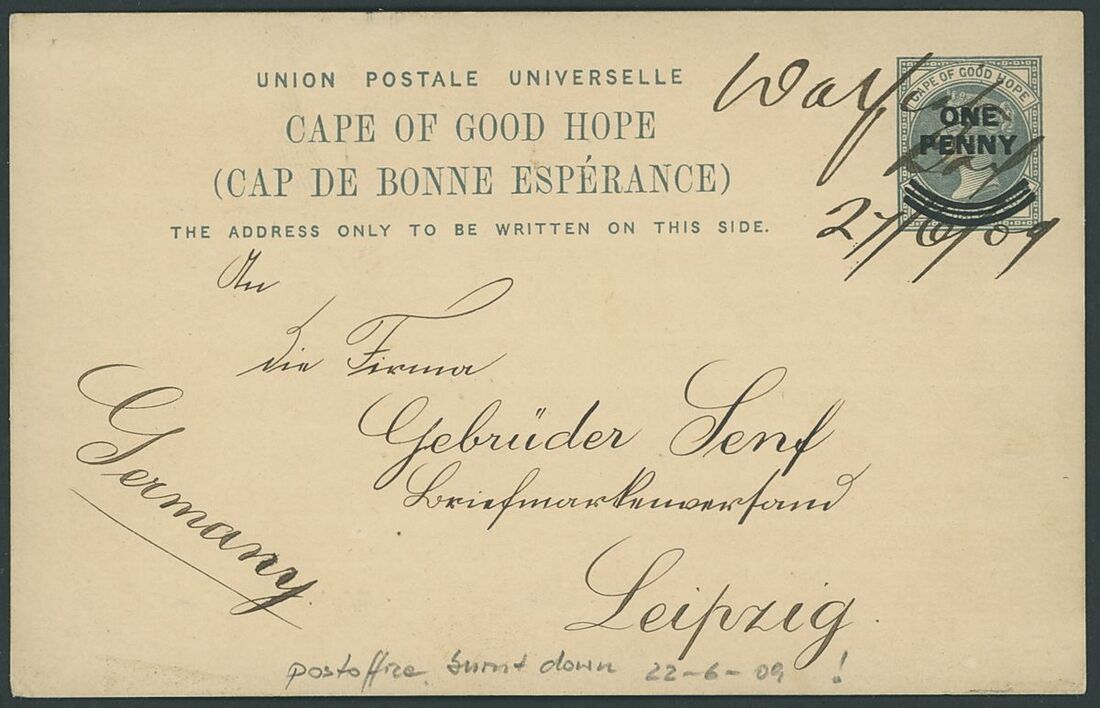 UNION POSTALE UNIVERSELLE
CAPE OF GOOD HOPE
(CAP DE BONNE ESPÉRANCE)
THE ADDRESS ONLY TO BE WRITTEN ON THIS SIDE.
CAPE OF GOOD HOPE
ONE
PENNY
27/6/09
An
die Firma
Gebrüder Senf
Briefmarkenversand
Leipzig
Germany
postoffice burnt down 22-6-09 !